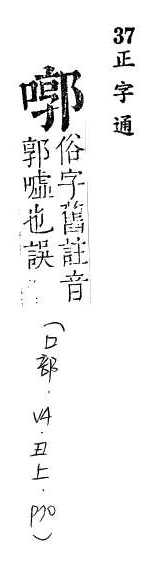 37正字通
嘟
俗字舊註音
郭噓也誤
(口部.V4.丑上.P70)